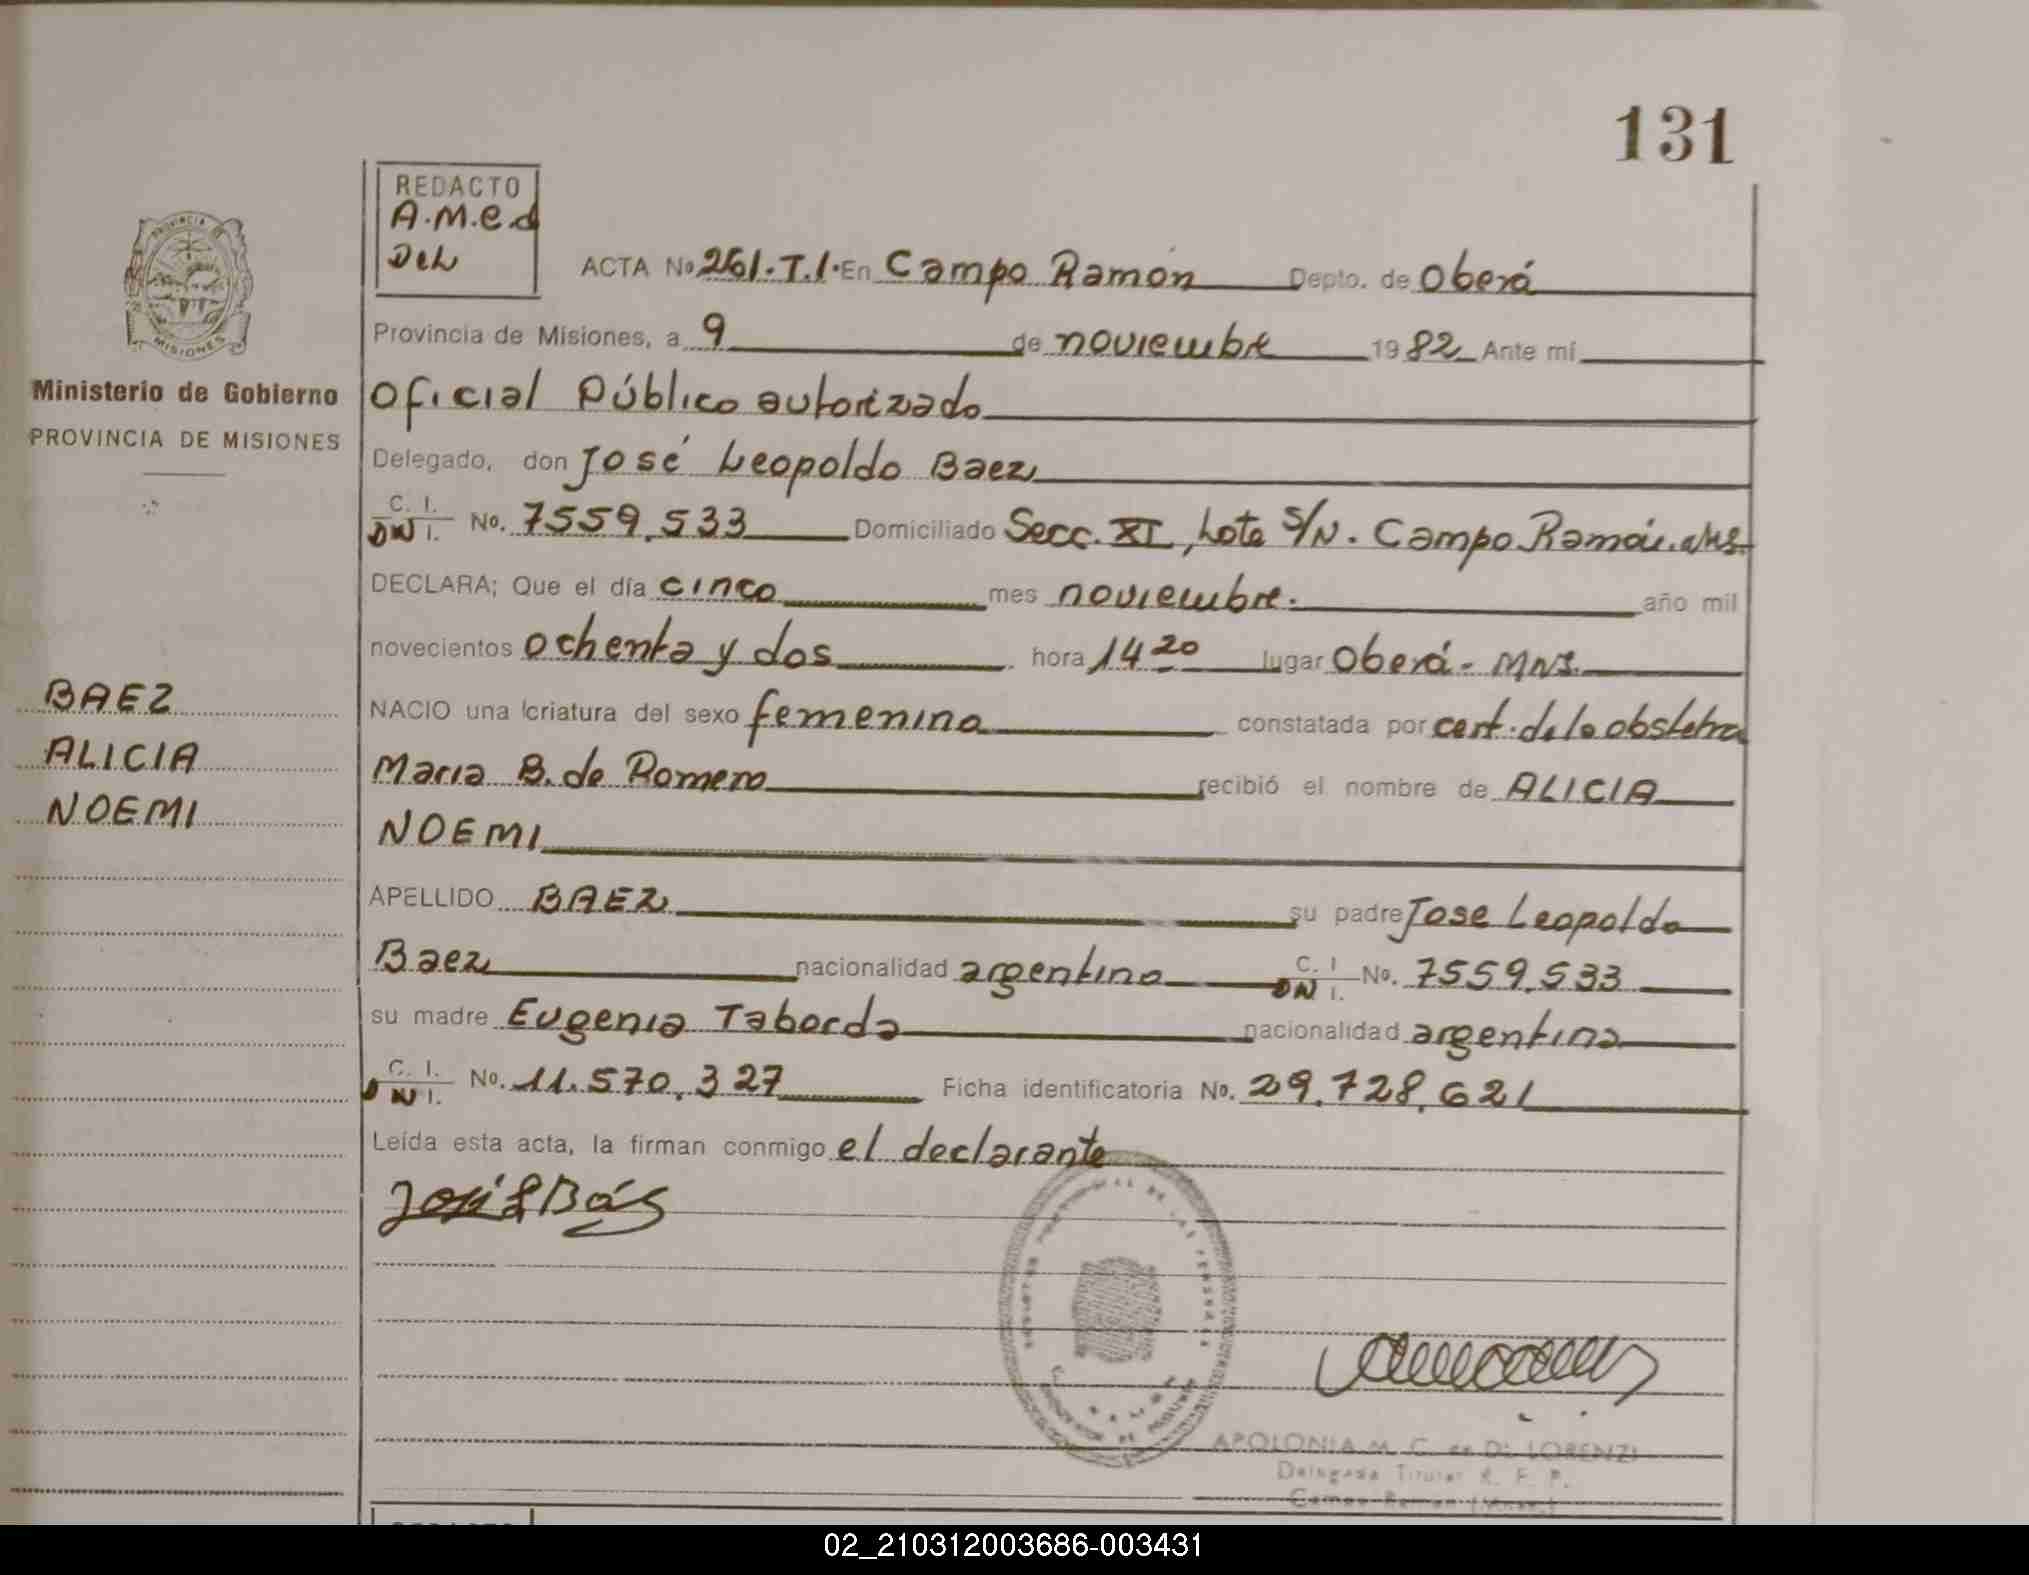 131
REDACTO
A.M.e.d
Del
ACTA No 261. T.I. En Campo Ramón Depto. de Oberá
Provincia de Misiones, a 9 de noviembre 1982 Ante mí
Oficial Público autorizado
Delegado, don José Leopoldo Baez
C. I. DN I. No. 7559.533 Domiciliado Secc. XI, Lote S/N. Campo Ramón. Mns.
DECLARA; Que el día cinco mes noviembre. año mil
novecientos ochenta y dos hora 14 20 lugar Oberá - MNS.
NACIO una criatura del sexo femenino constatada por cert. de la obstetra
Maria B. de Romero recibió el nombre de ALICIA
NOEMI
APELLIDO BAEZ su padre Jose Leopoldo
Baez nacionalidad argentino C. I. DN I. No. 7559.533
su madre Eugenia Taborda nacionalidad argentina
C. I. DN I. No. 11.570.327 Ficha identificatoria No. 29.728.621
Leída esta acta, la firman conmigo el declarante
José L Báez
APOLONIA M. C. de Di LORENZI
Delegada Titular R. P. P.
Campo Ramon (Mnes.)
PROVINCIA DE
MISIONES
Ministerio de Gobierno
PROVINCIA DE MISIONES
BAEZ
ALICIA
NOEMI
02_210312003686-003431